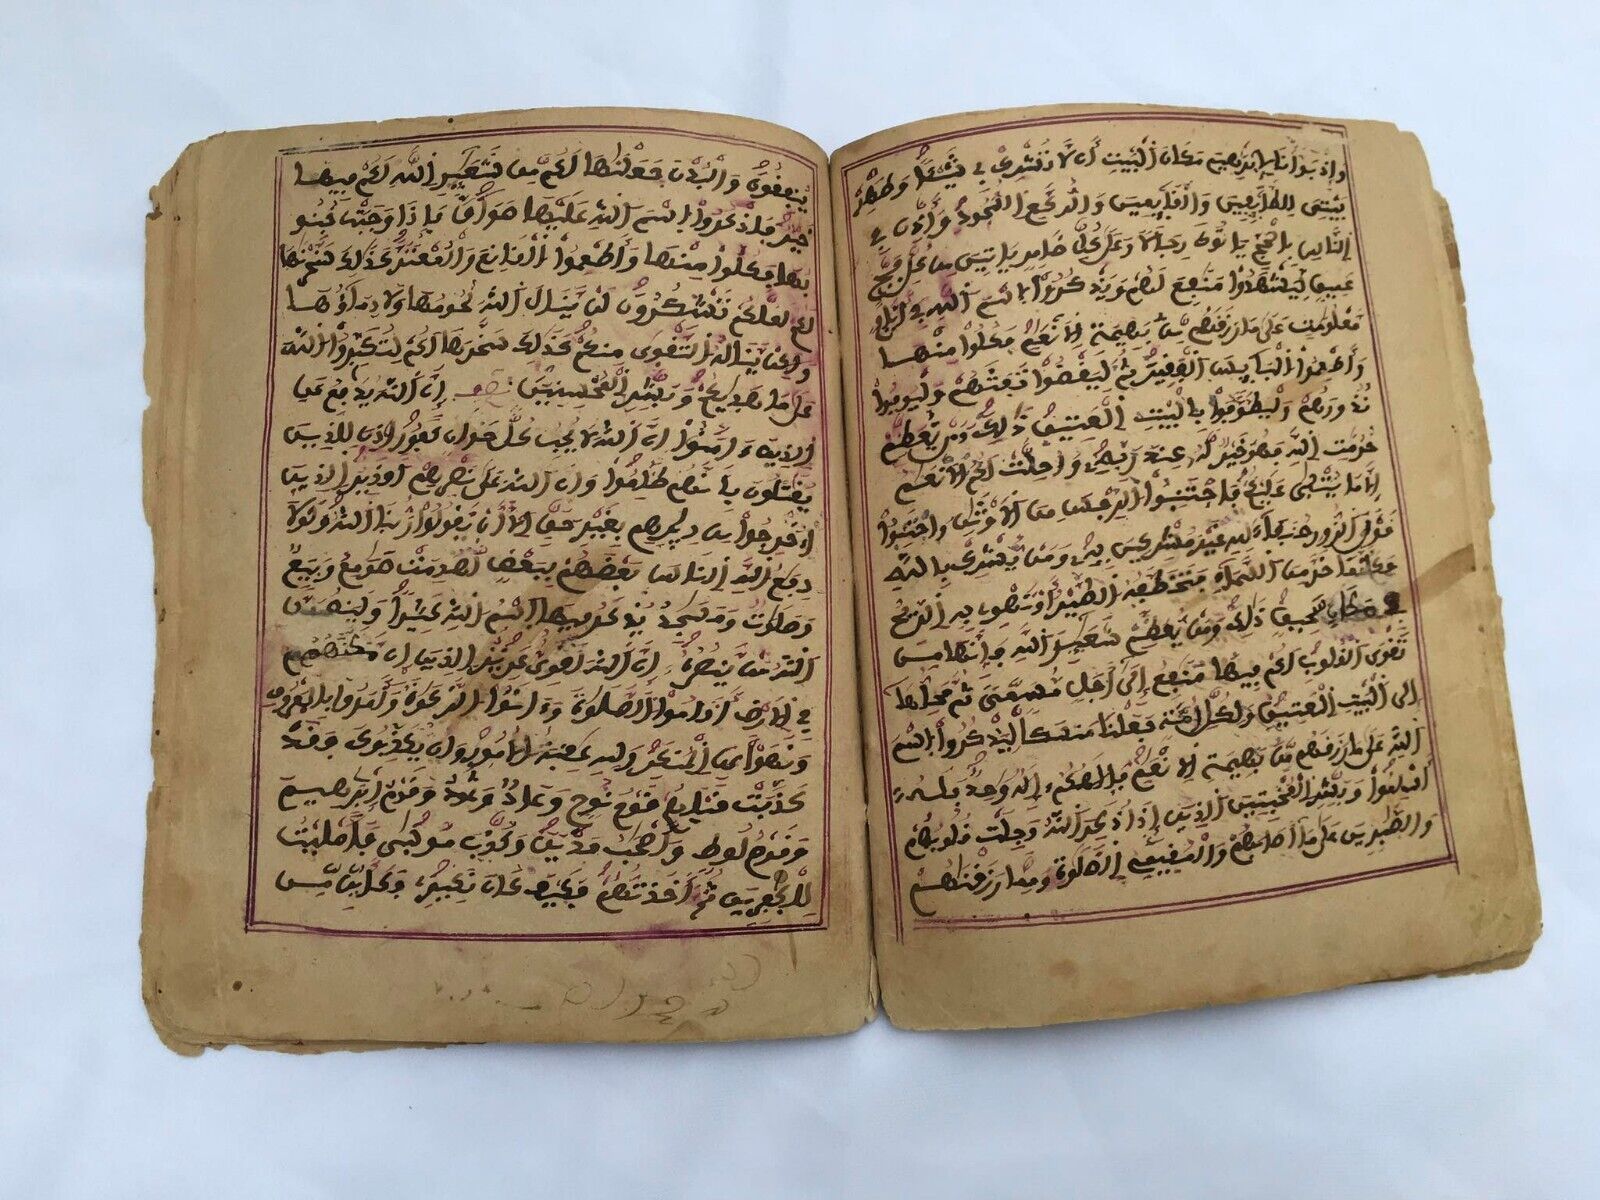 وإذ بوأنا لإبرهيم مكان البيت أن لا تشرك بي شيئا وطهر
بيتي للطائفين والقائمين والركع السجود وأذن في
الناس بالحج يأتوك رجالا وعلى كل ضامر يأتين من كل فج
عميق ليشهدوا منفع لهم ويذكروا اسم الله في أيام
معلومت على ما رزقهم من بهيمة الأنعم فكلوا منها
وأطعموا البائس الفقير ثم ليقضوا تفثهم وليوفوا
نذورهم وليطوفوا بالبيت العتيق ذلك ومن يعظم
حرمت الله فهو خير له عند ربه وأحلت لكم الأنعم
إلا ما يتلى عليكم فاجتنبوا الرجس من الأوثن واجتنبوا
قول الزور حنفاء لله غير مشركين به ومن يشرك بالله
فكأنما خر من السماء فتخطفه الطير أو تهوي به الريح
في مكان سحيق ذلك ومن يعظم شعئر الله فإنها من
تقوى القلوب لكم فيها منفع إلى أجل مسمى ثم محلها
إلى البيت العتيق ولكل أمة جعلنا منسكا ليذكروا اسم
الله على ما رزقهم من بهيمة الأنعم فإلهكم إله وحد فله
أسلموا وبشر المخبتين الذين إذا ذكر الله وجلت قلوبهم
والصبرين على ما أصابهم والمقيمي الصلوة ومما رزقنهم
ينفقون والبدن جعلنها لكم من شعئر الله لكم فيها
خير فاذكروا اسم الله عليها صواف فإذا وجبت جنو
بها فكلوا منها وأطعموا القانع والمعتر كذلك سخرنها
لكم لعلكم تشكرون لن ينال الله لحومها ولا دماؤها
ولكن يناله التقوى منكم كذلك سخرها لكم لتكبروا الله
على ما هديكم وبشر المحسنين إن الله يدفع عن
الذين ءامنوا إن الله لا يحب كل خوان كفور أذن للذين
يقتلون بأنهم ظلموا وإن الله على نصرهم لقدير الذين
أخرجوا من ديرهم بغير حق إلا أن يقولوا ربنا الله ولولا
دفع الله الناس بعضهم ببعض لهدمت صومع وبيع
وصلوت ومسجد يذكر فيها اسم الله كثيرا ولينصرن
الله من ينصره إن الله لقوي عزيز الذين إن مكنهم
في الأرض أقاموا الصلوة وءاتوا الزكوة وأمروا بالمعروف
ونهوا عن المنكر ولله عقبة الأمور وإن يكذبوك فقد
كذبت قبلهم قوم نوح وعاد وثمود وقوم إبرهيم
وقوم لوط وأصحب مدين وكذب موسى فأمليت
للكفرين ثم أخذتهم فكيف كان نكير فكأين من